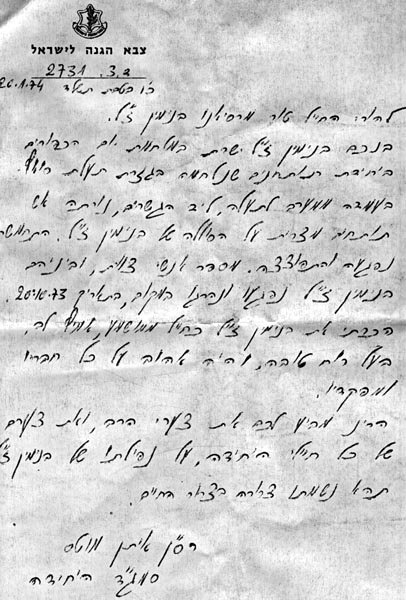 צבא הגנה לישראל
ד.צ. 2731
כ"ו בטבת תשל"ד
20.1.74
להורי החייל טור' בנימין ז"ל.
בנכם בנימין ז"ל שרת במלחמת יום הכפורים
ביחידת תותחנים שנלחמה בגזרת תעלת סואץ.
בעמדה ממערב לתעלה, ליד הגשרים, נורתה אש
תותחים מצרית על הסוללה של בנימין ז"ל. התחמושת
נפגעה והתפוצצה. מספר אנשי צוות, וביניהם
בנימין ז"ל נפגעו ונהרגו במקום, בתאריך 20-10-73.
הכרתי את בנימין ז"ל כחייל ממושמע, לב,
בעל רוח טובה, והיה אהוב על כל חבריו
ומפקדיו.
הריני מביע לכם את צערי הרב, ואת צערם
של כל חיילי היחידה, על נפילתו של בנימין ז"ל
תהא נשמתו צרורה בצרור החיים.
רס"ן איתן
סמג"ד היחידה